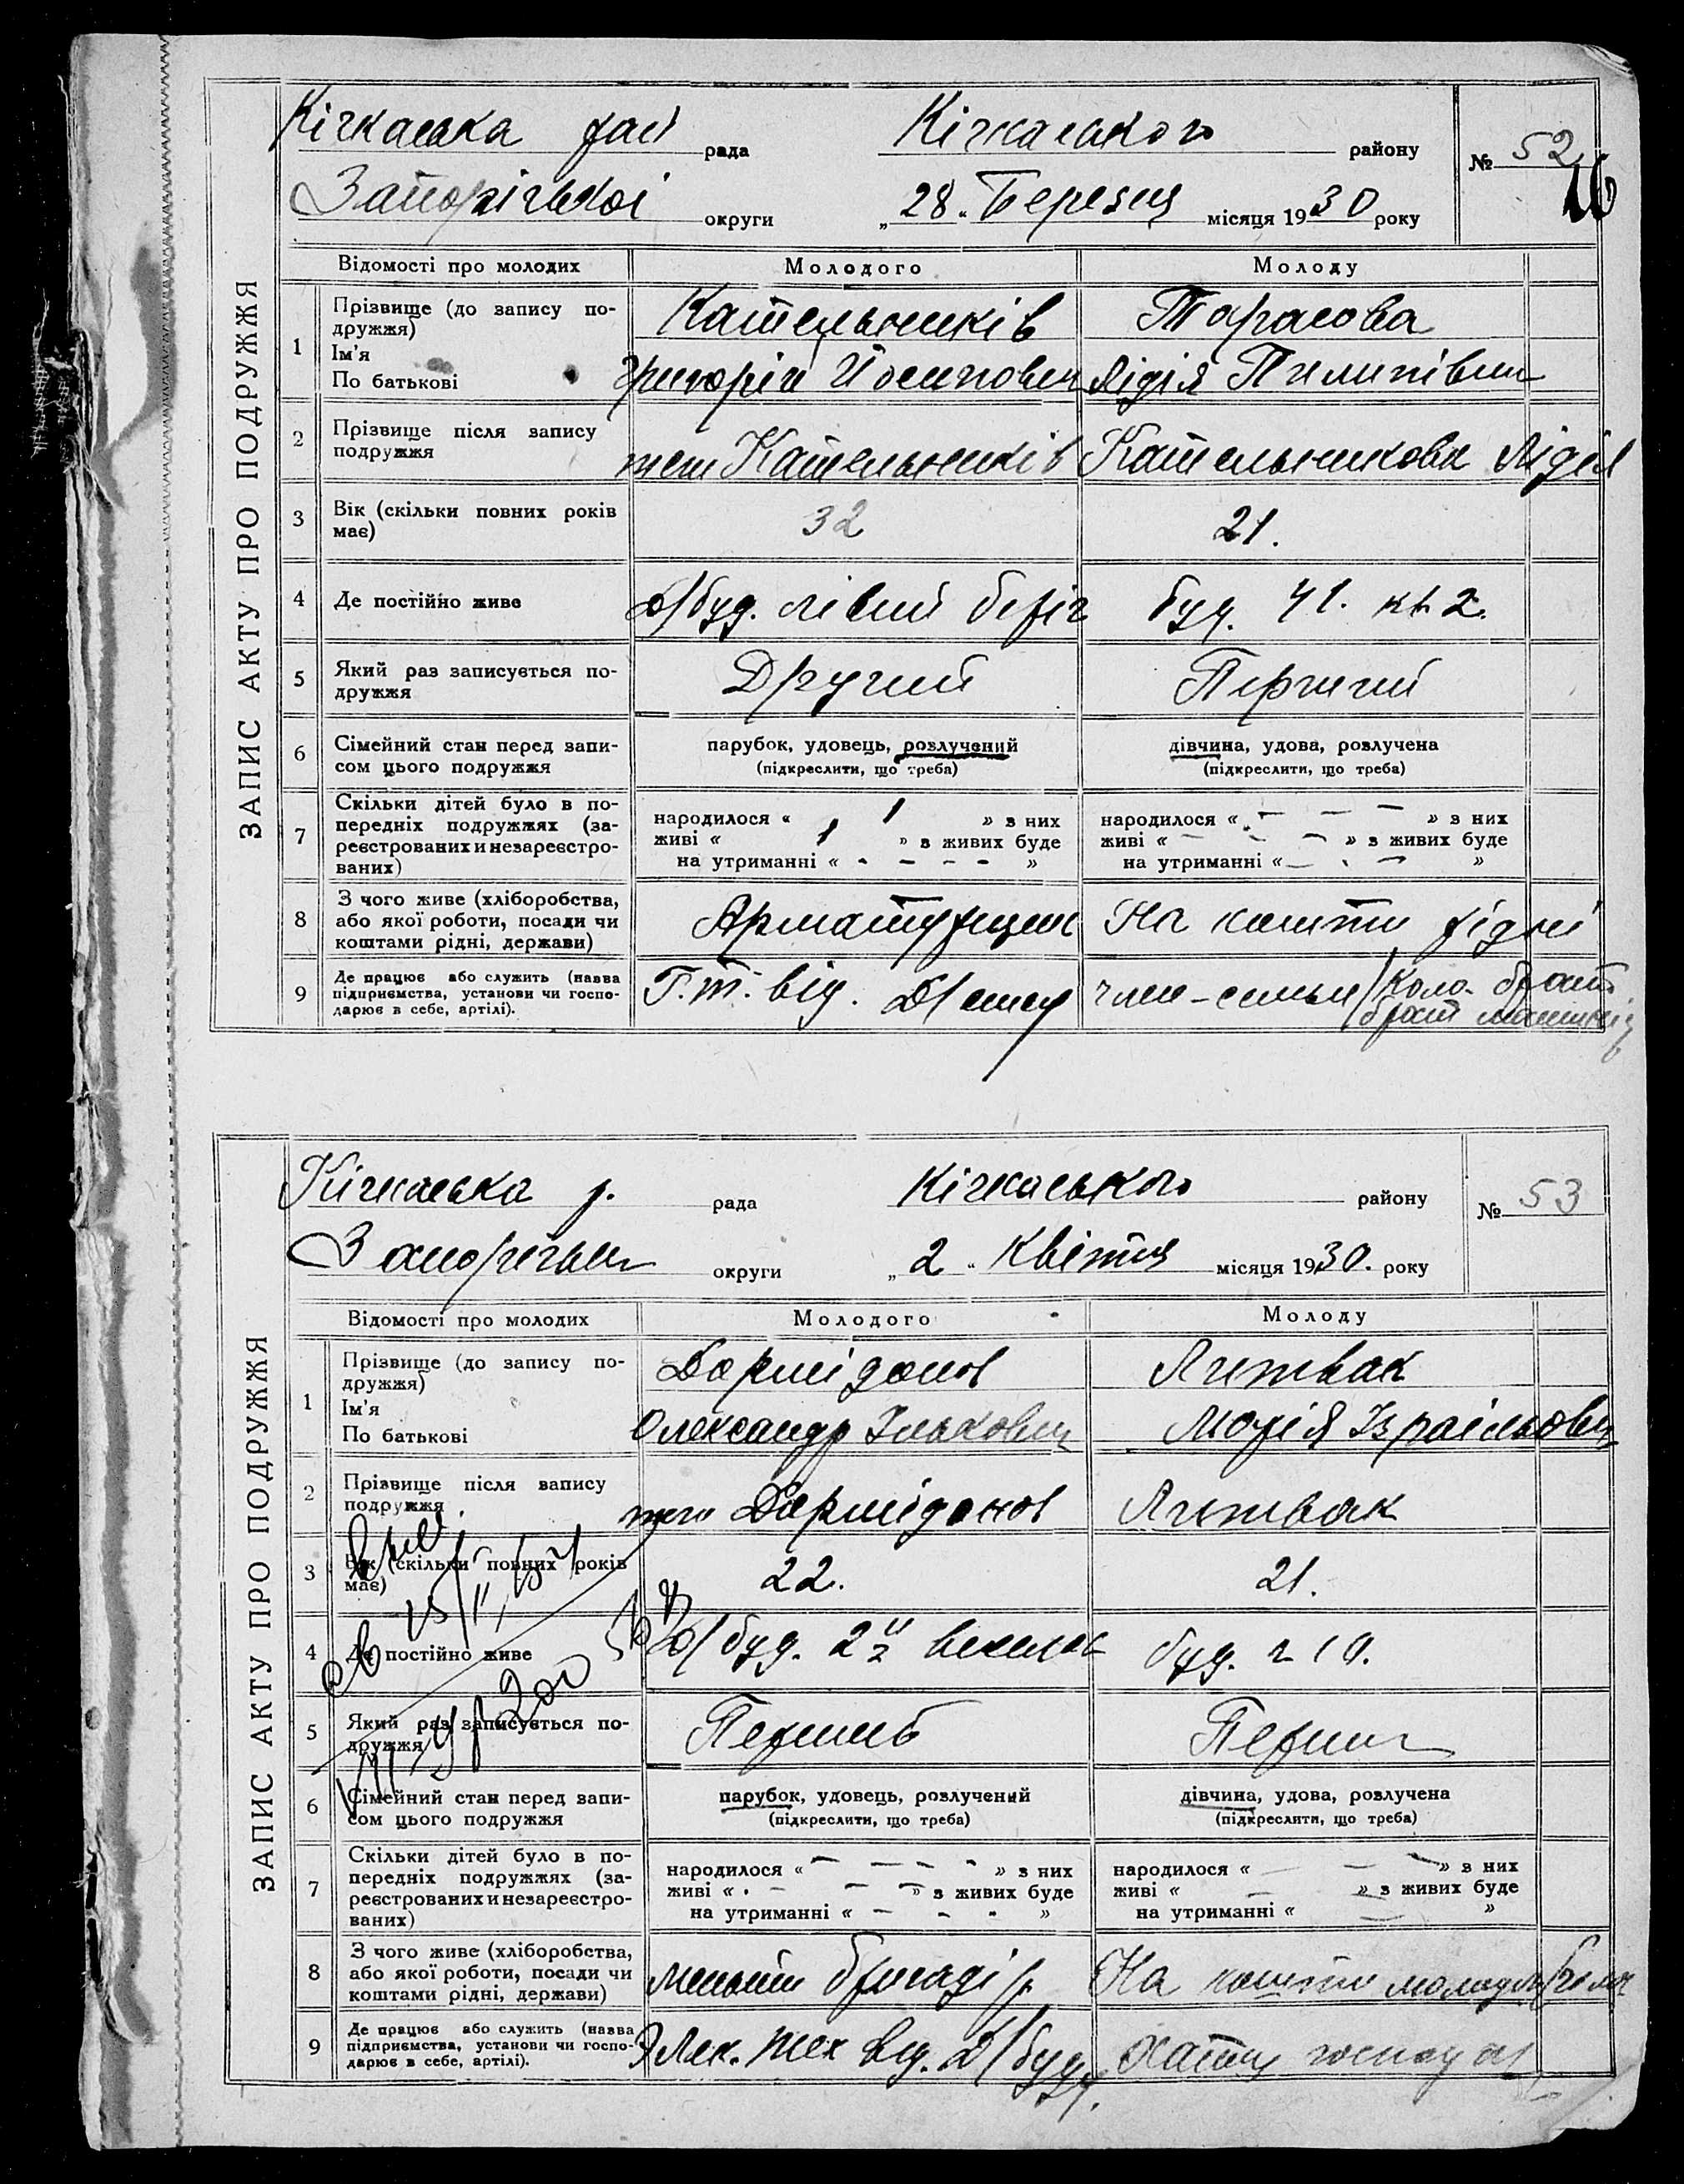 ЗАПИС АКТУ ПРО ПОДРУЖЖЯ
Кічкаська рай рада Кічкаського району № 52
16
Запорізької округи „28„ Березня місяця 1930 року
Відомості про молодих Молодого Молоду
1 Прізвище (до запису по-
дружжя)
Ім'я
По батькові
Кательників Тарасова
Григорій Йосипович Лідія Пилипівна
2 Прізвище після запису
подружжя
теж Кательників Кательникова Лідія
3 Вік (скільки повних років
має)
32 21.
4 Де постійно живе
Д/буд. лівий беріг буд. 41. кв. 2.
5 Який раз записується по-
дружжя
Другий Перший
6 Сімейний стан перед запи-
сом цього подружжя
парубок, удовець, розлучений дівчина, удова, розлучена
(підкреслити, що треба) (підкреслити, що треба)
7 Скільки дітей було в по-
передніх подружжях (за-
реєстрованих и незареєстро-
ваних)
народилося « 1 » з них народилося « — — — » з них
живі « 1 » з живих буде живі « — - — » з живих буде
на утриманні « - — - — » на утриманні « — - — »
8 З чого живе (хліборобства,
або якої роботи, посади чи
коштами рідні, держави)
Арматурщик На кошти рідні
9 Де працює або служить (назва
підприємства, установи чи госпо-
дарює в себе, артілі).
Г.т. від. член-семьи
брат
ЗАПИС АКТУ ПРО ПОДРУЖЖЯ
Кічкаська р. рада Кічкаського району № 53
округи „2„ Квітня місяця 1930. року
Відомості про молодих Молодого Молоду
1 Прізвище (до запису по-
дружжя)
Ім'я
По батькові
Дормідонов Литвак
Олександр Ількович Марія Ізраільовн
2 Прізвище після запису
подружжя
теж Дормідонов Литвак
3 Вік (скільки повних років
має)
22. 21.
4 Де постійно живе
Д/буд. буд. 19.
5 Який раз записується по-
дружжя
6 Сімейний стан перед запи-
сом цього подружжя
парубок, удовець, розлучений дівчина, удова, розлучена
(підкреслити, що треба) (підкреслити, що треба)
7 Скільки дітей було в по-
передніх подружжях (за-
реєстрованих и незареєстро-
ваних)
народилося « — — - - » з них народилося « — — » з них
живі « - — — — » з живих буде живі « — » з живих буде
на утриманні « — - - » на утриманні « — »
8 З чого живе (хліборобства,
або якої роботи, посади чи
коштами рідні, держави)
бригадір На кошти
9 Де працює або служить (назва
підприємства, установи чи госпо-
дарює в себе, артілі).
Элек. тех від. Д/буду.